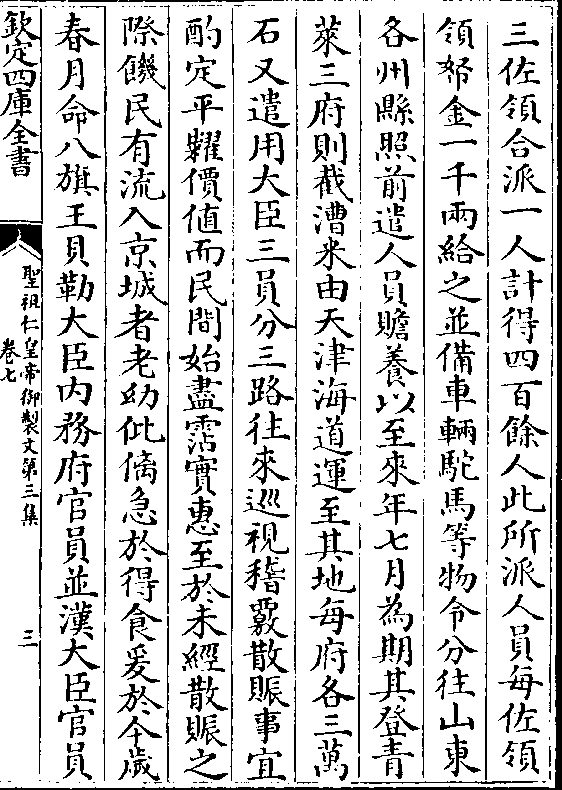 三佐領合派一人計得四百餘人此所派人員每佐領
領帑金一千兩給之並備車輛駝馬等物令分往山東
各州縣照前遣人員贍養以至來年七月為期其登青
萊三府則截漕米由天津海道運至其地每府各三萬
石又遣用大臣三員分三路往來巡視稽覈散賑事宜
酌定平糶價值而民間始盡霑實惠至於未經散賑之
際饑民有流入京城者老幼仳㒧急於得食爰於今歲
春月命八旗王貝勒大臣内務府官員並漢大臣官員
欽定四庫全書
聖祖仁皇帝御製文第三集
卷七
三